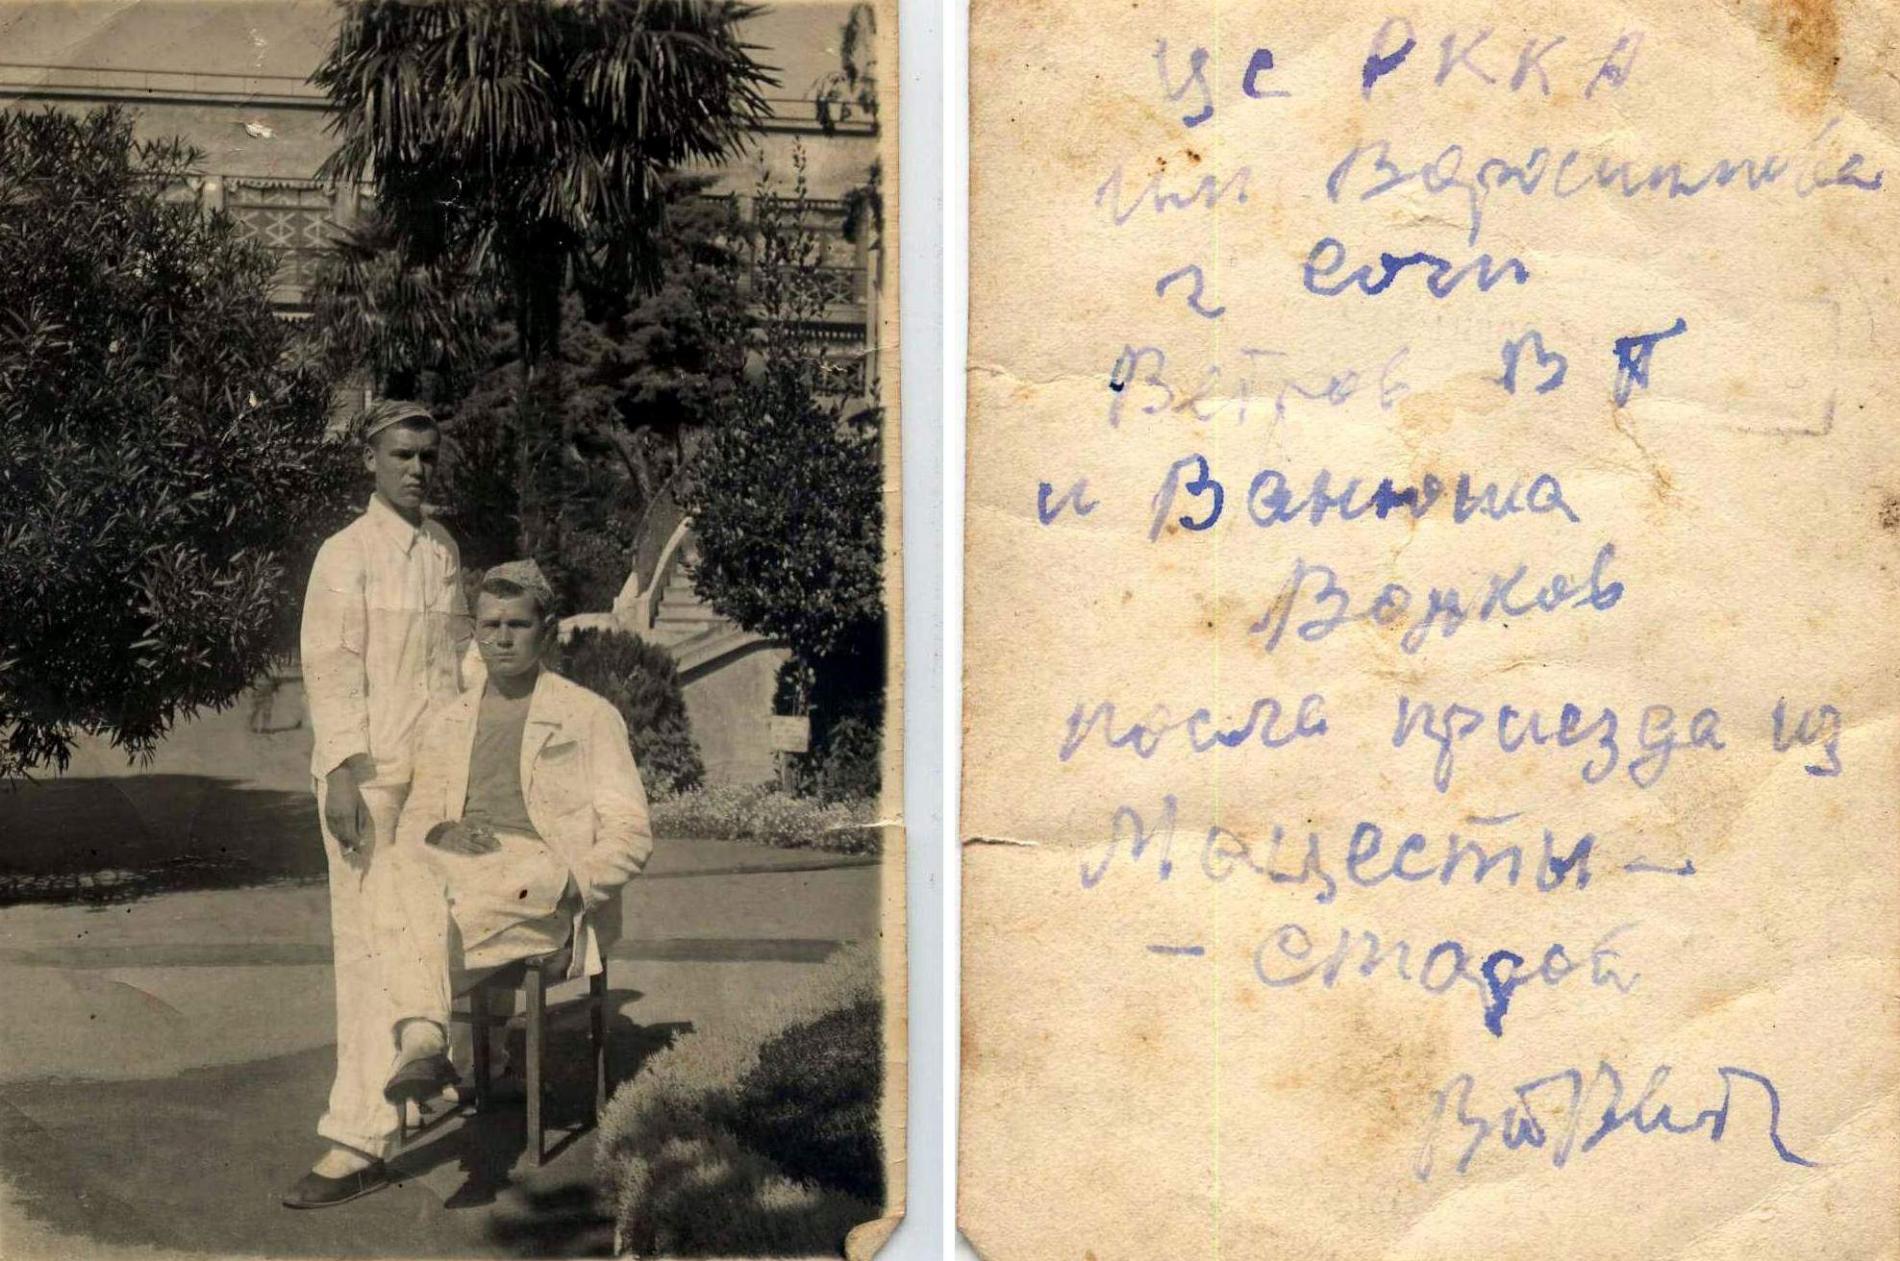 ЦС РККА
им Ворошилова
г Сочи
Ветров В П
и Ванюша
Волков
после приезда из
Мацесты -
- старой